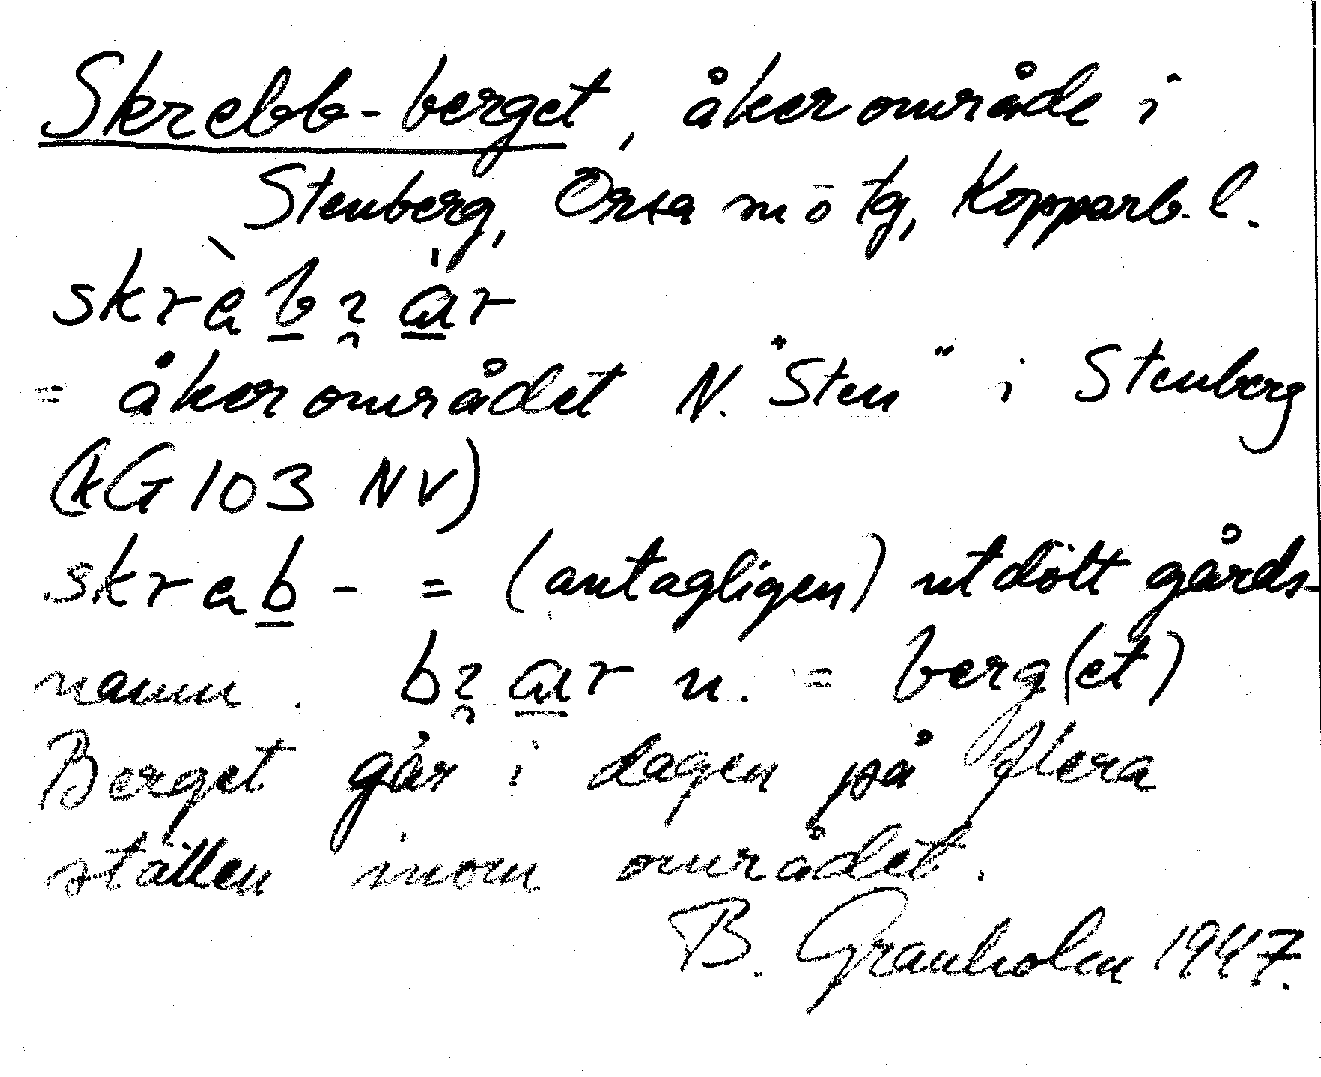 Skrebb-berget, åkerområde i
Stenberg, Orsa m ö tg, Kopparb. l.
= åkerområdet N. "Sten" i Stenberg
(kG 103 NV)
skrab - = (antagligen) utdött gårds-
namn. n. = berg(et)
Berget går i dagen på flera
ställen inom området.
B. Granholm 1947.